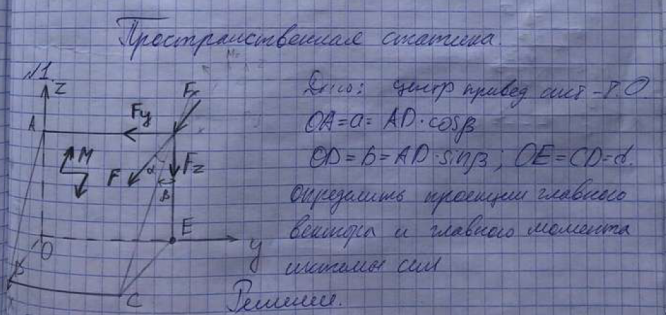 Пространственная статика.
№1.
Дано: центр привед сист - т.О
OA=a=AD·cosβ
OD=b=AD·sinβ; OE=CD=d.
определить проекции главного
вектора и главного момента
системы сил
Решение.
z
A
Fy
Fx
M
F
α
Fz
β
O
E
y
C